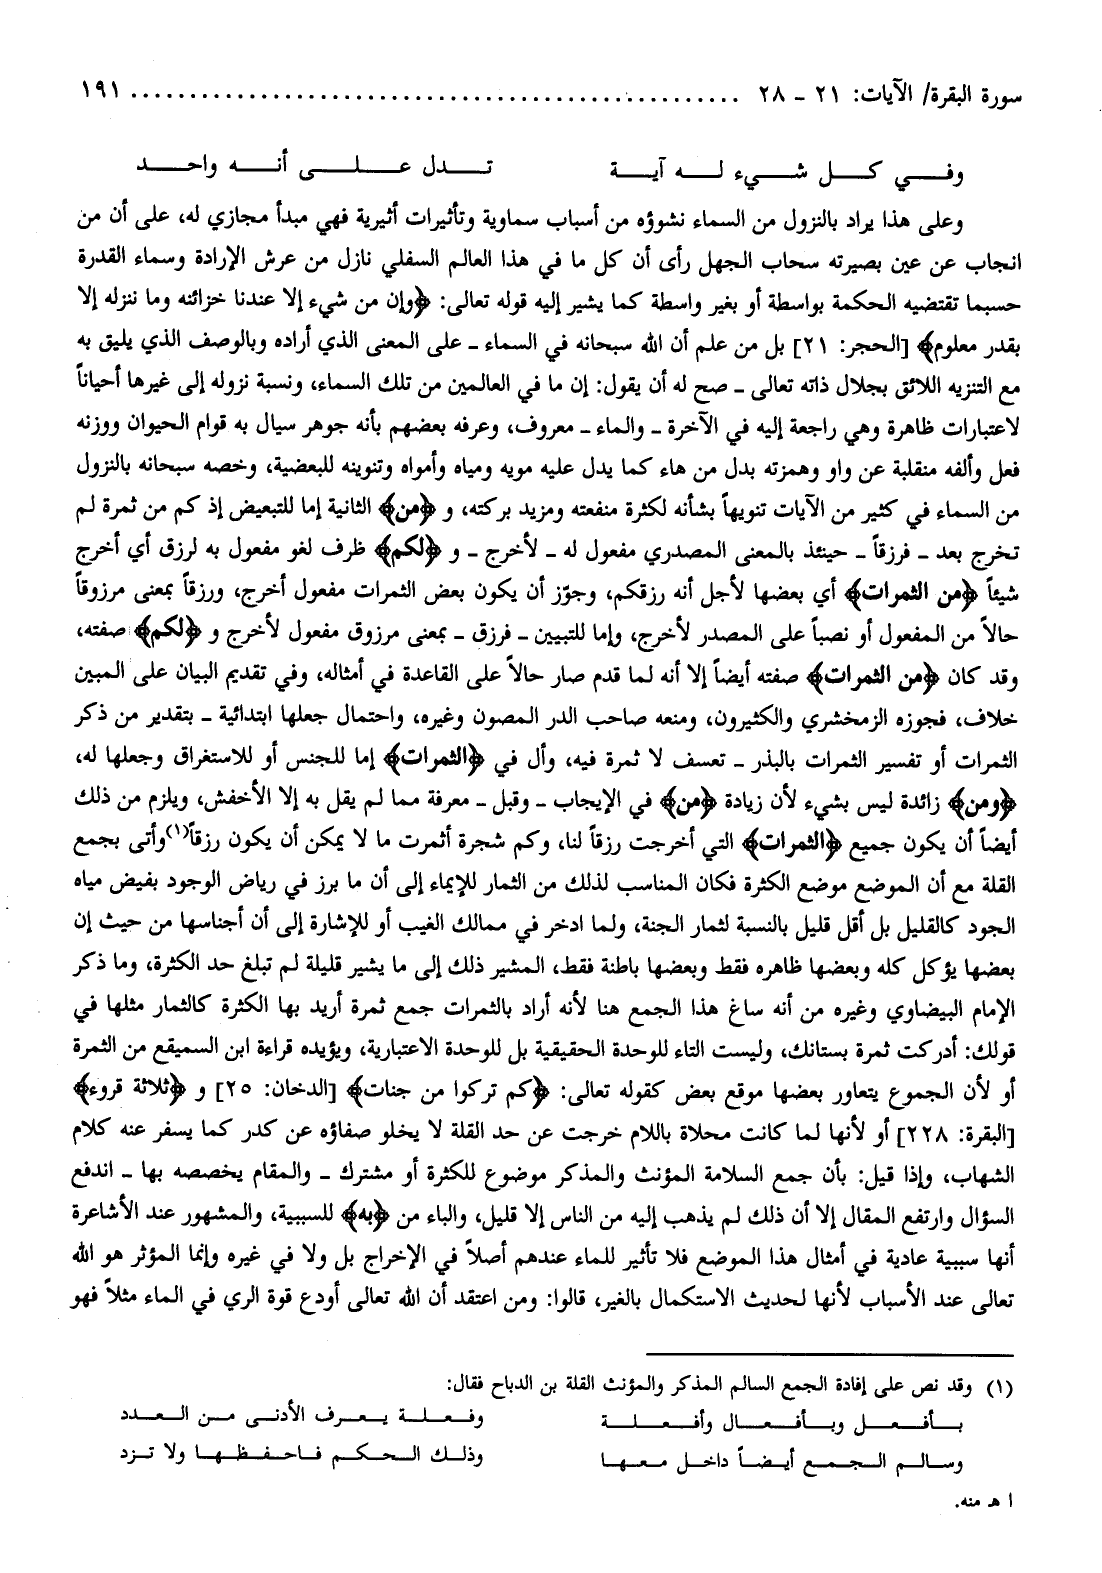 سورة البقرة/ الآيات: ٢١ - ٢٨ ........................................................ ١٩١
وفي كل شيء له آية تدل على أنه واحد
وعلى هذا يراد بالنزول من السماء نشوؤه من أسباب سماوية وتأثيرات أثيرية فهي مبدأ مجازي له، على أن من
انجاب عن عين بصيرته سحاب الجهل رأى أن كل ما في هذا العالم السفلي نازل من عرش الإرادة وسماء القدرة
حسبما تقتضيه الحكمة بواسطة أو بغير واسطة كما يشير إليه قوله تعالى: ﴿وإن من شيء إلا عندنا خزائنه وما ننزله إلا
بقدر معلوم﴾ [الحجر: ٢١] بل من علم أن الله سبحانه في السماء - على المعنى الذي أراده وبالوصف الذي يليق به
مع التنزيه اللائق بجلال ذاته تعالى - صح له أن يقول: إن ما في العالمين من تلك السماء، ونسبة نزوله إلى غيرها أحياناً
لاعتبارات ظاهرة وهي راجعة إليه في الآخرة - والماء - معروف، وعرفه بعضهم بأنه جوهر سيال به قوام الحيوان ووزنه
فعل وألفه منقلبة عن واو وهمزته بدل من هاء كما يدل عليه مويه ومياه وأمواه وتنوينه للبعضية، وخصه سبحانه بالنزول
من السماء في كثير من الآيات تنويهاً بشأنه لكثرة منفعته ومزيد بركته، و ﴿من﴾ الثانية إما للتبعيض إذ كم من ثمرة لم
تخرج بعد - فرزقاً - حينئذ بالمعنى المصدري مفعول له - لأخرج - و ﴿لكم﴾ ظرف لغو مفعول به لرزق أي أخرج
شيئاً ﴿من الثمرات﴾ أي بعضها لأجل أنه رزقكم، وجوّز أن يكون بعض الثمرات مفعول أخرج، ورزقاً بمعنى مرزوقاً
حالاً من المفعول أو نصباً على المصدر لأخرج، وإما للتبيين - فرزق - بمعنى مرزوق مفعول لأخرج و ﴿لكم﴾ صفته،
وقد كان ﴿من الثمرات﴾ صفته أيضاً إلا أنه لما قدم صار حالاً على القاعدة في أمثاله، وفي تقديم البيان على المبين
خلاف، فجوزه الزمخشري والكثيرون، ومنعه صاحب الدر المصون وغيره، واحتمال جعلها ابتدائية - بتقدير من ذكر
الثمرات أو تفسير الثمرات بالبذر - تعسف لا ثمرة فيه، وأل في ﴿الثمرات﴾ إما للجنس أو للاستغراق وجعلها له،
﴿ومن﴾ زائدة ليس بشيء لأن زيادة ﴿من﴾ في الإيجاب - وقبل - معرفة مما لم يقل به إلا الأخفش، ويلزم من ذلك
أيضاً أن يكون جميع ﴿الثمرات﴾ التي أخرجت رزقاً لنا، وكم شجرة أثمرت ما لا يمكن أن يكون رزقاً(١) وأتى بجمع
القلة مع أن الموضع موضع الكثرة فكان المناسب لذلك من الثمار للإيماء إلى أن ما برز في رياض الوجود بفيض مياه
الجود كالقليل بل أقل قليل بالنسبة لثمار الجنة، ولما ادخر في ممالك الغيب أو للإشارة إلى أن أجناسها من حيث إن
بعضها يؤكل كله وبعضها ظاهره فقط وبعضها باطنة فقط، المشير ذلك إلى ما يشير قليلة لم تبلغ حد الكثرة، وما ذكر
الإمام البيضاوي وغيره من أنه ساغ هذا الجمع هنا لأنه أراد بالثمرات جمع ثمرة أريد بها الكثرة كالثمار مثلها في
قولك: أدركت ثمرة بستانك، وليست التاء للوحدة الحقيقية بل للوحدة الاعتبارية، ويؤيده قراءة ابن السميقع من الثمرة
أو لأن الجموع يتعاور بعضها موقع بعض كقوله تعالى: ﴿كم تركوا من جنات﴾ [الدخان: ٢٥] و ﴿ثلاثة قروء﴾
[البقرة: ٢٢٨] أو لأنها لما كانت محلاة باللام خرجت عن حد القلة لا يخلو صفاؤه عن كدر كما يسفر عنه كلام
الشهاب، وإذا قيل: بأن جمع السلامة المؤنث والمذكر موضوع للكثرة أو مشترك - والمقام يخصصه بها - اندفع
السؤال وارتفع المقال إلا أن ذلك لم يذهب إليه من الناس إلا قليل، والباء من ﴿به﴾ للسببية، والمشهور عند الأشاعرة
أنها سببية عادية في أمثال هذا الموضع فلا تأثير للماء عندهم أصلاً في الإخراج بل ولا في غيره وإنما المؤثر هو الله
تعالى عند الأسباب لأنها لحديث الاستكمال بالغير، قالوا: ومن اعتقد أن الله تعالى أودع قوة الري في الماء مثلاً فهو
(١) وقد نص على إفادة الجمع السالم المذكر والمؤنث القلة بن الدباح فقال:
بأفعل وبأفعال وأفعلة وفعلة يعرف الأدنى من العدد
وسالم الجمع أيضاً داخل معها وذلك الحكم فاحفظها ولا تزد
ا هـ منه.